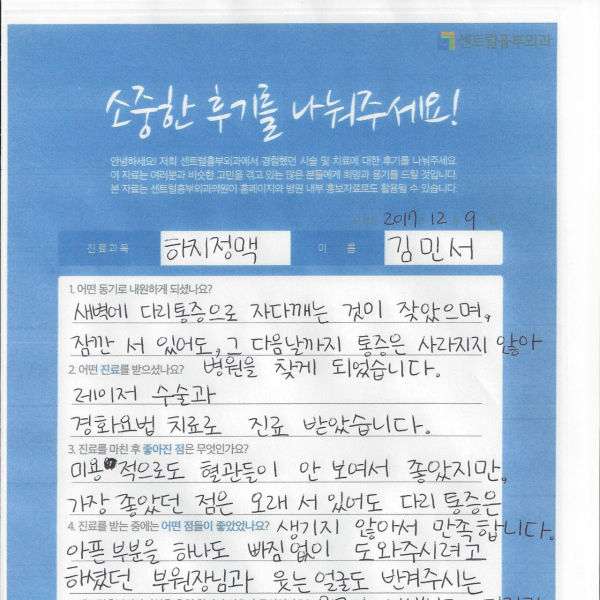 센트럴흉부외과
소중한 후기를 나눠주세요!
안녕하세요! 저희 센트럴흉부외과에서 경험했던 시술 및 치료에 대한 후기를 나눠주세요.
이 자료는 여러분과 비슷한 고민을 겪고 있는 많은 분들에게 희망과 용기를 드릴 것입니다.
본 자료는 센트럴흉부외과의원이 홈페이지와 병원 내부 홍보자료로도 활용될 수 있습니다.
2017 12 9
진료과목 하지정맥 이 름 김민서
1. 어떤 동기로 내원하게 되셨나요?
새벽에 다리통증으로 자다깨는 것이 잦았으며,
잠깐 서 있어도, 그 다음날까지 통증은 사라지지 않아
병원을 찾게 되었습니다.
2. 어떤 진료를 받으셨나요?
레이저 수술과
경화요법 치료로 진료 받았습니다.
3. 진료를 마친 후 좋아진 점은 무엇인가요?
미용적으로도 혈관들이 안 보여서 좋았지만,
가장 좋았던 점은 오래 서 있어도 다리 통증은
생기지 않아서 만족합니다.
4. 진료를 받는 중에는 어떤 점들이 좋았었나요?
아픈 부분을 하나도 빠짐없이 도와주시려고
하셨던 부원장님과 웃는 얼굴로 반겨주시는